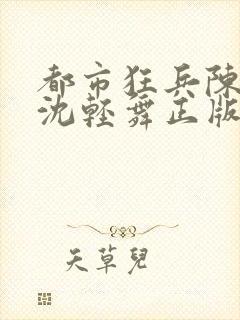 都市狂兵陳
沈輕舞正版
天草兒